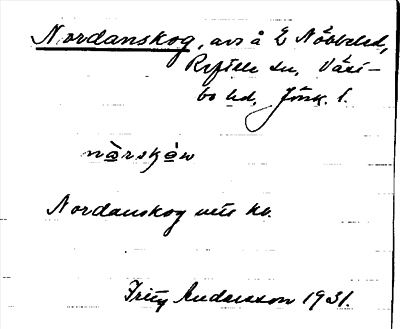 Nordanskog, avs å E Nöbbeled,
Rydaholm sn, Väst-
bo hd, Jönk. l.
nàrskòw
Nordanskog uttr kb.
Fritz Andersson 1931.